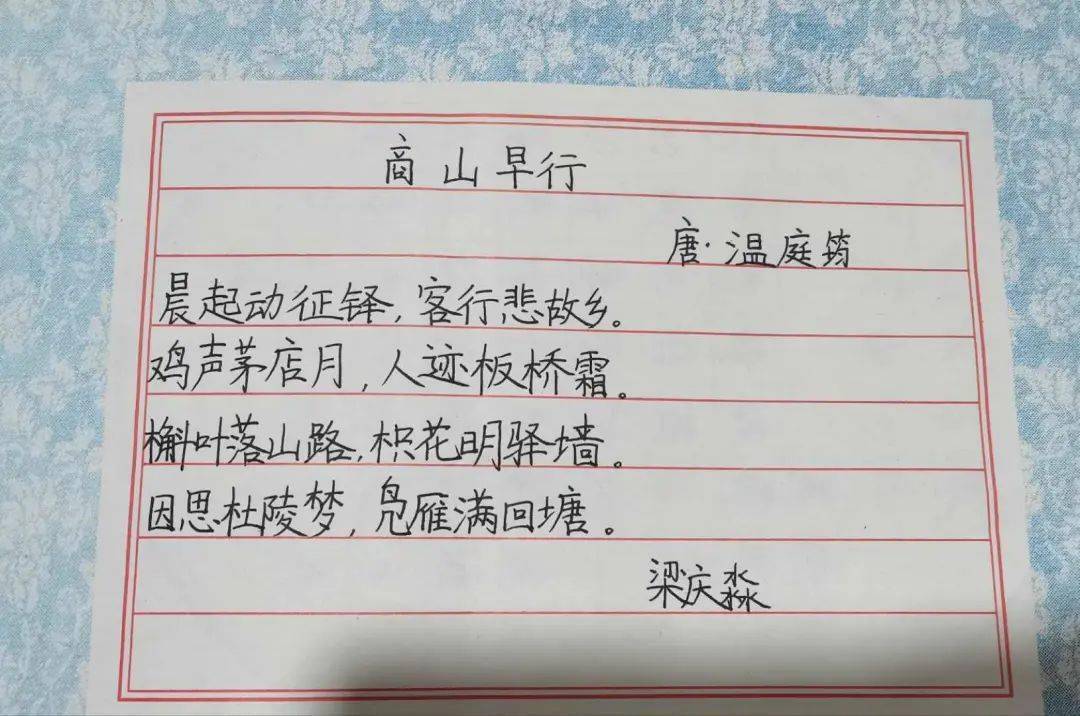 商山早行
唐·温庭筠
晨起动征铎,客行悲故乡。
鸡声茅店月,人迹板桥霜。
槲叶落山路,枳花明驿墙。
因思杜陵梦,凫雁满回塘。
梁庆淼